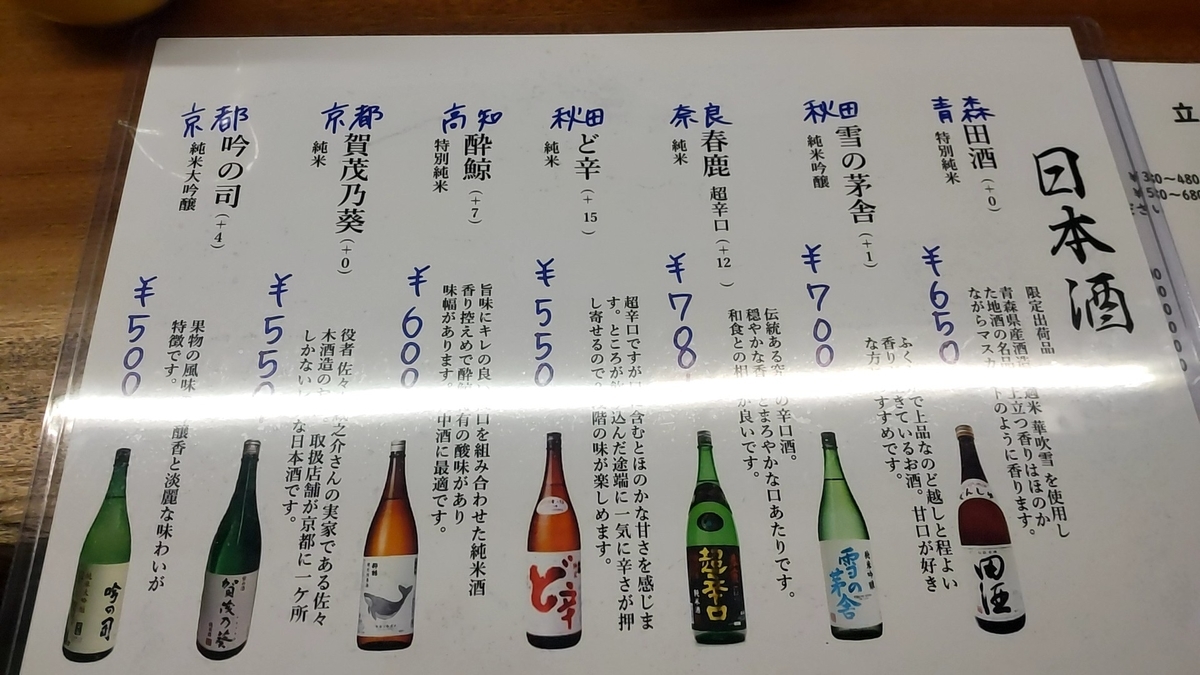 日本酒
青森
田酒（+0）
特別純米
¥650
限定出荷品
青森県産酒造 米 華吹雪 を使用し
た地酒の名品 上立つ香りはほのか
ながらマスカットのように香ります。
秋田
雪の茅舎（+1）
純米吟醸
¥700
ふく で上品なのど越しと程よい
香り きているお酒。甘口が好き
な方 すすめです。
奈良
春鹿 超辛口（+12）
純米
¥700
伝統ある の辛口酒。
穏やかな香 とまろやかな口あたりです。
和食との相 が良いです。
秋田
ど辛（+15）
純米
¥550
超辛口ですが 含むとほのかな甘さを感じま
す。ところが 込んだ途端に一気に辛さが押
し寄せるので 階の味が楽しめます。
高知
酔鯨（+7）
特別純米
¥600
旨味にキレの良い 口を組み合わせた純米酒
香り控えめで酔鯨 有の酸味があり
味幅があります。 中酒に最適です。
京都
賀茂乃葵（+0）
純米
¥550
役者 佐々 之介さんの実家である佐々
木酒造の 取扱店舗が京都に一ケ所
しかない な日本酒です。
京都
吟の司（+4）
純米大吟醸
¥500
果物の風味 醸香と淡麗な味わいが
特徴です。
吟の司
賀茂乃葵
酔鯨
ど辛
超辛口
純米酒
雪の茅舎
純米吟醸
田酒
立
〜480
〜680